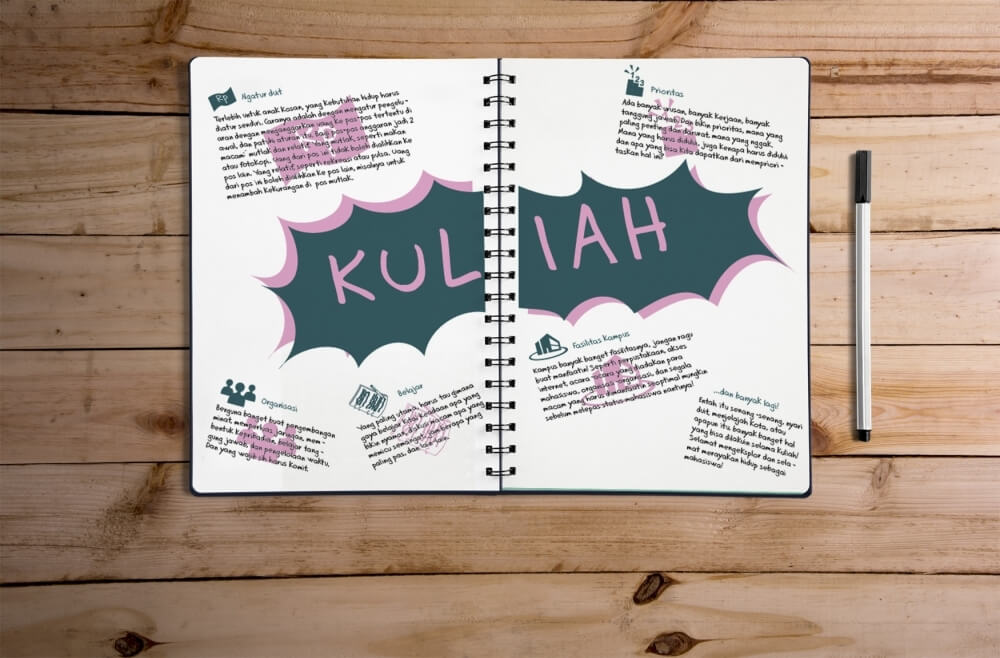 Rp
Ngatur duit
Terlebih untuk anak kosan, yang kebutuhan hidup harus
diatur sendiri. Caranya adalah dengan mengatur pengelu -
aran dengan menganggarkan uang ke pos-pos tertentu di
awal, dan patuhi aturan itu. Pos-pos anggaran jadi 2
macam: mutlak dan relatif. Yang mutlak, seperti makan
atau fotokopi, uang dari pos ini tidak boleh dialihkan ke
pos lain. Yang relatif, seperti rekreasi atau pulsa. Uang
dari pos ini boleh dialihkan ke pos lain, misalnya untuk
menambah kekurangan di pos mutlak.
123
Prioritas
Ada banyak urusan, banyak kerjaan, banyak
tanggung jawab. Dan bikin prioritas, mana yang
paling penting dan darurat, mana yang nggak.
Mana yang harus diduluin, juga kenapa harus diduluin
dan apa yang bisa kita dapatkan dari mempriori -
taskan hal ini?
KULIAH
Organisasi
Berguna banget buat pengembangan
minat, memperluas jaringan, mem -
bentuk kepribadian, belajar tang -
gung jawab, dan pengelolaan waktu.
Dan yang wajib sih harus komit.
Belajar
Yang paling utama, harus tau gimana
gaya belajar kita. Keadaan apa yang
bikin nyaman, diskusi macam apa yang
memicu semangat, seberapa yang
paling pas, dan lain-lain.
Fasilitas Kampus
Kampus banyak banget fasilitasnya, jangan ragu
buat manfaatin! Seperti perpustakaan, akses
internet, acara-acara yang diadakan para
mahasiswa, organisasi-organisasi, dan segala
macam yang harus dimanfaatin seoptimal mungkin
sebelum melepas status mahasiswa nantinya!
...dan banyak lagi!
Entah itu senang-senang, nyari
duit, menjelajah Kota, atau
apapun itu, banyak banget hal
yang bisa dilakuin selama Kuliah!
Selamat mengeksplor dan sela -
mat merayakan hidup sebagai
mahasiswa!